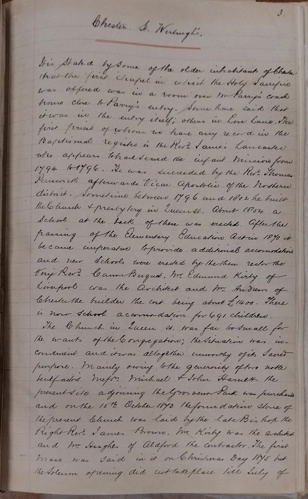 3.
Chester. St. Werburgh's.
It is stated by some of the older inhabitants of Chester
that the first Chapel in which the Holy Sacrifice
was offered was in a room over Mr. Parry's coach
house close to Parry's entry. Some have said that
it was in the entry itself, others in Love Lane. The
first priest of whom we have any record in the
Baptismal register is the Revd. James Lancaster
who appears to have served the infant Mission from
1794 to 1796. He was succeeded by the Rev. Thomas
Penswick afterwards Vicar Apostolic of the Northern
district. Sometime between 1796 and 1802 he built
the Church & presbytery in Queen St. About 1854 a
School at the back of them was erected. After the
passing of the Elementary Education Act in 1870 it
became imperative to provide additional accommodation
and new Schools were erected by the then rector the
Very Revd. Canon Buquet. Mr. Edmund Kirby of
Liverpool was the Architect and Mr. Andrew of
Chester the builder the cost being about £1400. There
is now School accommodation for 691 children.
The Church in Queen St. was far too small for
the wants of the Congregation; the situation was in-
convenient and it was altogether unworthy of its Sacred
purpose. Mainly owing to the generosity of two noble
benefactors Messrs. Michael & John Hanratty the
present site adjoining the Grosvenor Park was purchased
and on the 15th October 1873 the foundation stone of
the present Church was laid by the late Bishop the
Right Revd. James Brown, Mr. Kirby was the architect
and Mr. Hughes of Aldford the contractor. The first
Mass was said in it on Christmas Day 1875 but
the Solemn opening did not take place till July of